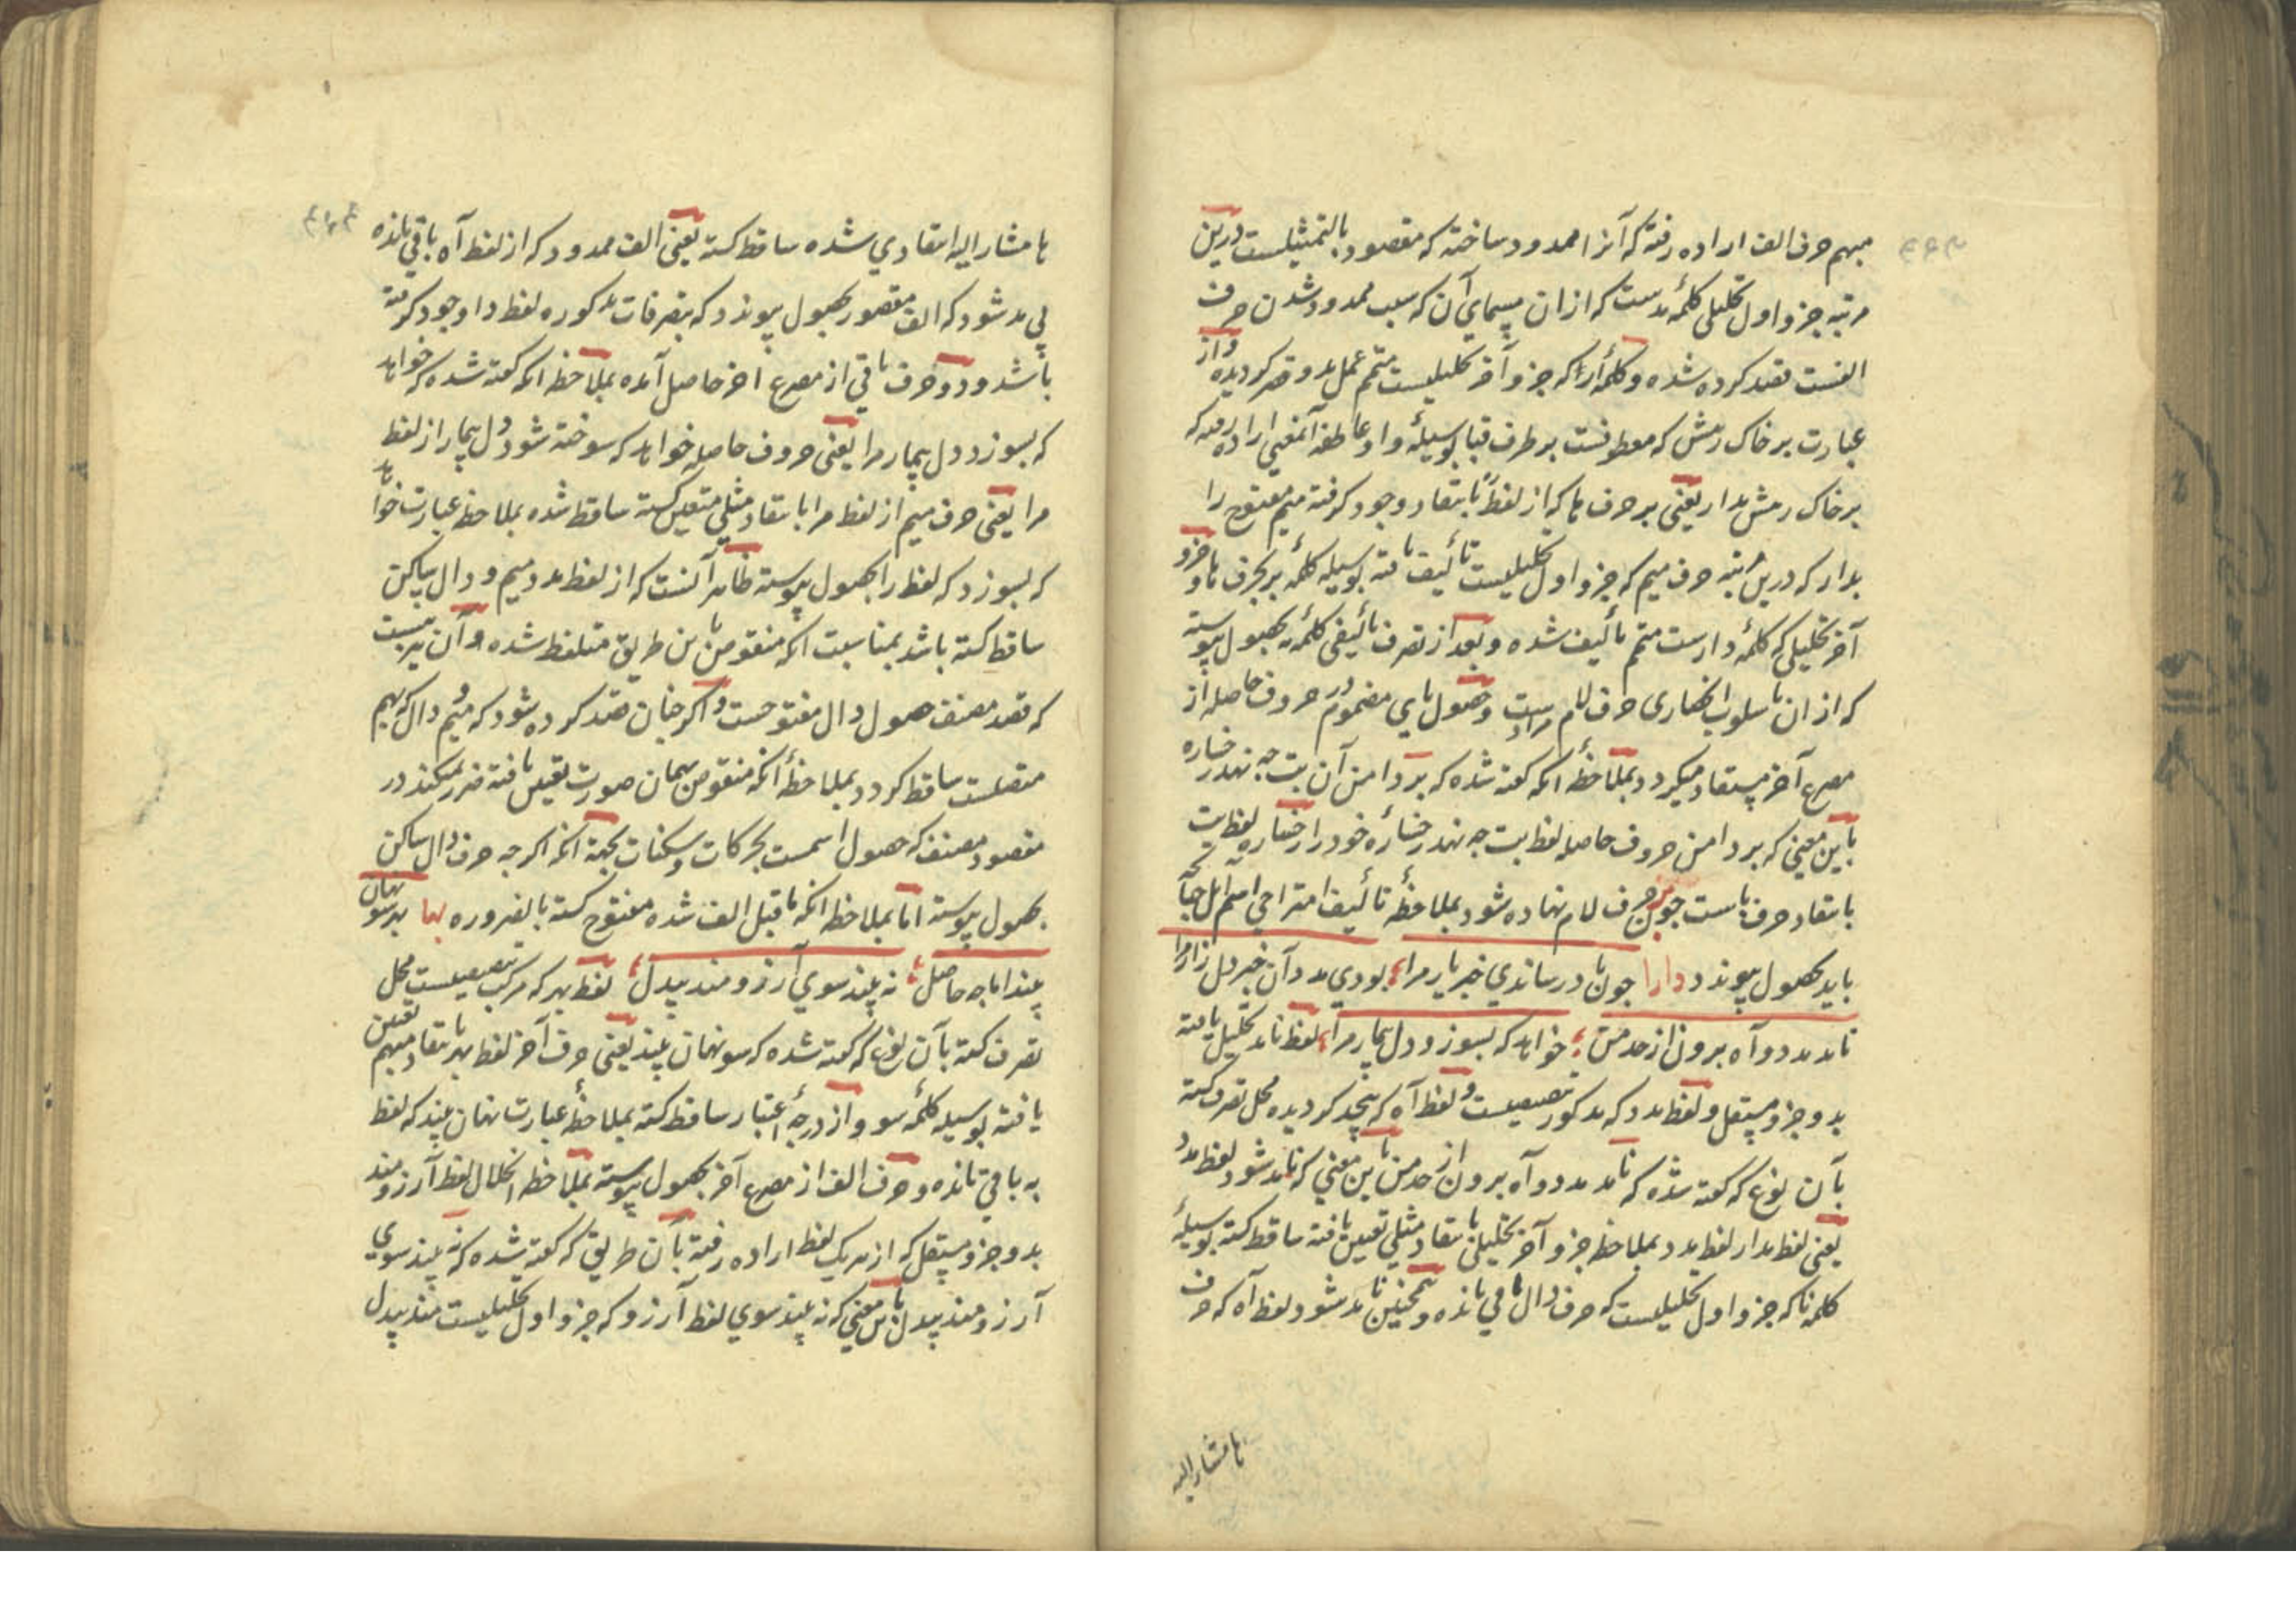 مبهم حرف الف اراده رفته که آنرا ممدود ساخته که مقصود بالتمثیلست درین
مرتبه جزو اول تحلیلی کلمهٔ مدست که ازان مسمای آن که سبب ممدود شدن حرف
الفست قصد کرده شده و کلمهٔ را که جزو آخر تحلیلیست متمم عمل مد و قصر کردیده و از
عبارت بر خاک رمش که معطوفست بر طرف قبا بوسیلهٔ واو عاطفه آنمعنی اراده رفته که
بر خاک رمش بدار یعنی بر حرف ها که از لفظ بانتقاد وجود کرفته میم مفتوح را
بدار که درین مرتبه حرف میم که جزو اول تحلیلیست تألیف یافته بوسیله کلمهٔ بر بحرف ها و جزو
آخر تحلیلی که کلمهٔ دارست متمم تألیف شده و بعد از تصرف تألیفی کلمهٔ به بحصول پیوسته
که ازان باسلوب اضماری حرف لام مرادست و حصول بای مضموم در حروف حاصله از
مصرع آخر مستفاد میکردد بملاحظهٔ انکه کفته شده که بر دامن آن بت چه نهد رخساره
باین معنی که بر دامن حروف حاصله لفظ بت چه نهد رخسارهٔ خود را رخساره لفظ بت
بانتقاد حرف باست چون بر حرف لام نهاده شود بملاحظهٔ تألیف امتزاجی اسم اهل حجا
باید بحصول پیوندد دارا چون در رساندی خبر یار مرا بودی مدد آن خبر دل زار مرا
نامد مدد و آه برون از حد من خواهد که بسوزد دل بیمار مرا لفظ نامد تحلیل یافته
بدو جزو مستقل و لفظ مدد که مذکور تنصیصیست و لفظ آه که پنجد کردیده محل تصرف کشته
بآن نوع که کفته شده که نامد مدد و آه برون از حد من باین معنی که نامد شود لفظ مدد
یعنی لفظ مدار لفظ مدد بملاحظه جزو آخر تحلیلی بانتقاد مثلی تعیین یافته ساقط کشته بوسیلهٔ
کلمه نا که جزو اول تحلیلیست که حرف دال باقی مانده و همچنین نامد شود لفظ آه که حرف
ها مشار الیه
ها مشار الیه انتقادی شده ساقط کشته یعنی الف ممدود که از لفظ آه باقی مانده
بی مد شود که الف مقصور بحصول پیوندد که بتصرفات مذکوره لفظ دا وجود کرفته
باشد و دو حرف باقی از مصرع اخر حاصل آمده بملاحظه انکه کفته شده که خواهد
که بسوزد دل بیمار مرا یعنی حروف حاصله خواهد که سوخته شود دل بیمار از لفظ
مرا یعنی حرف میم از لفظ مرا بانتقاد مثلی متعین کشته ساقط شده بملاحظه عبارت خواهد
که بسوزد که لفظ را بحصول پیوسته ظاهر آنست که از لفظ مدد میم و دال ساکن
ساقط کشته باشد بمناسبت انکه منقوص باین طریق متلفظ شده و آن نیز هست
که قصد مصنف حصول دال مفتوحست و اکر چنان قصد کرده شود که میم و دال که بهم
متصلست ساقط کردد بملاحظهٔ آنکه منقوص بهمان صورت تعیین یافته ضرر نمیکند در
مقصود مصنف که حصول اسمست بحرکات و سکنات بجهة انکه اکر چه حرف دال ساکن
بحصول پیوسته اما بملاحظه انکه ماقبل الف شده مفتوح کشته بالضروره بها بهر سو نهان
بیند اما چه حاصل نه بیند سوی آرزومند بیدل لفظ بهر که مرکب تنصیصیست محل
تصرف کشته بآن نوع که کفته شده که سو نهان بیند یعنی حرف آخر لفظ بهر بانتقاد مبهم تعیین
یافته بوسیله کلمهٔ سو و از درجهٔ اعتبار ساقط کشته بملاحظهٔ عبارت نهان بیند که لفظ
به باقی مانده و حرف الف از مصرع آخر بحصول پیوسته بملاحظه انحلال لفظ آرزومند
بدو جزو مستقل که از هر یک لفظ اراده رفته بآن طریق که کفته شده که نه بیند سوی
آرزومند بیدل باین معنی که نه بیند سوی لفظ آرزو که جزو اول تحلیلیست مند بیدل